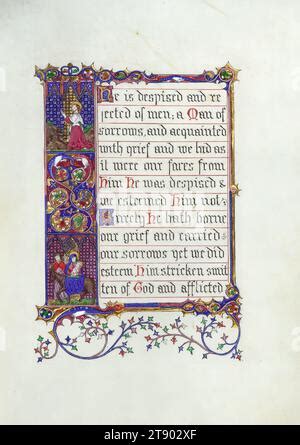 He is despised and re
jected of men; a Man of
sorrows, and acquainted
with grief and we hid as
it were our faces from
Him He was despised &
we esteemed Him not:
Surely He hath borne
our grief and carried
our sorrows yet we did
esteem Him stricken smit
ten of God and afflicted
alamy
Image ID: 2T902XF
www.alamy.com